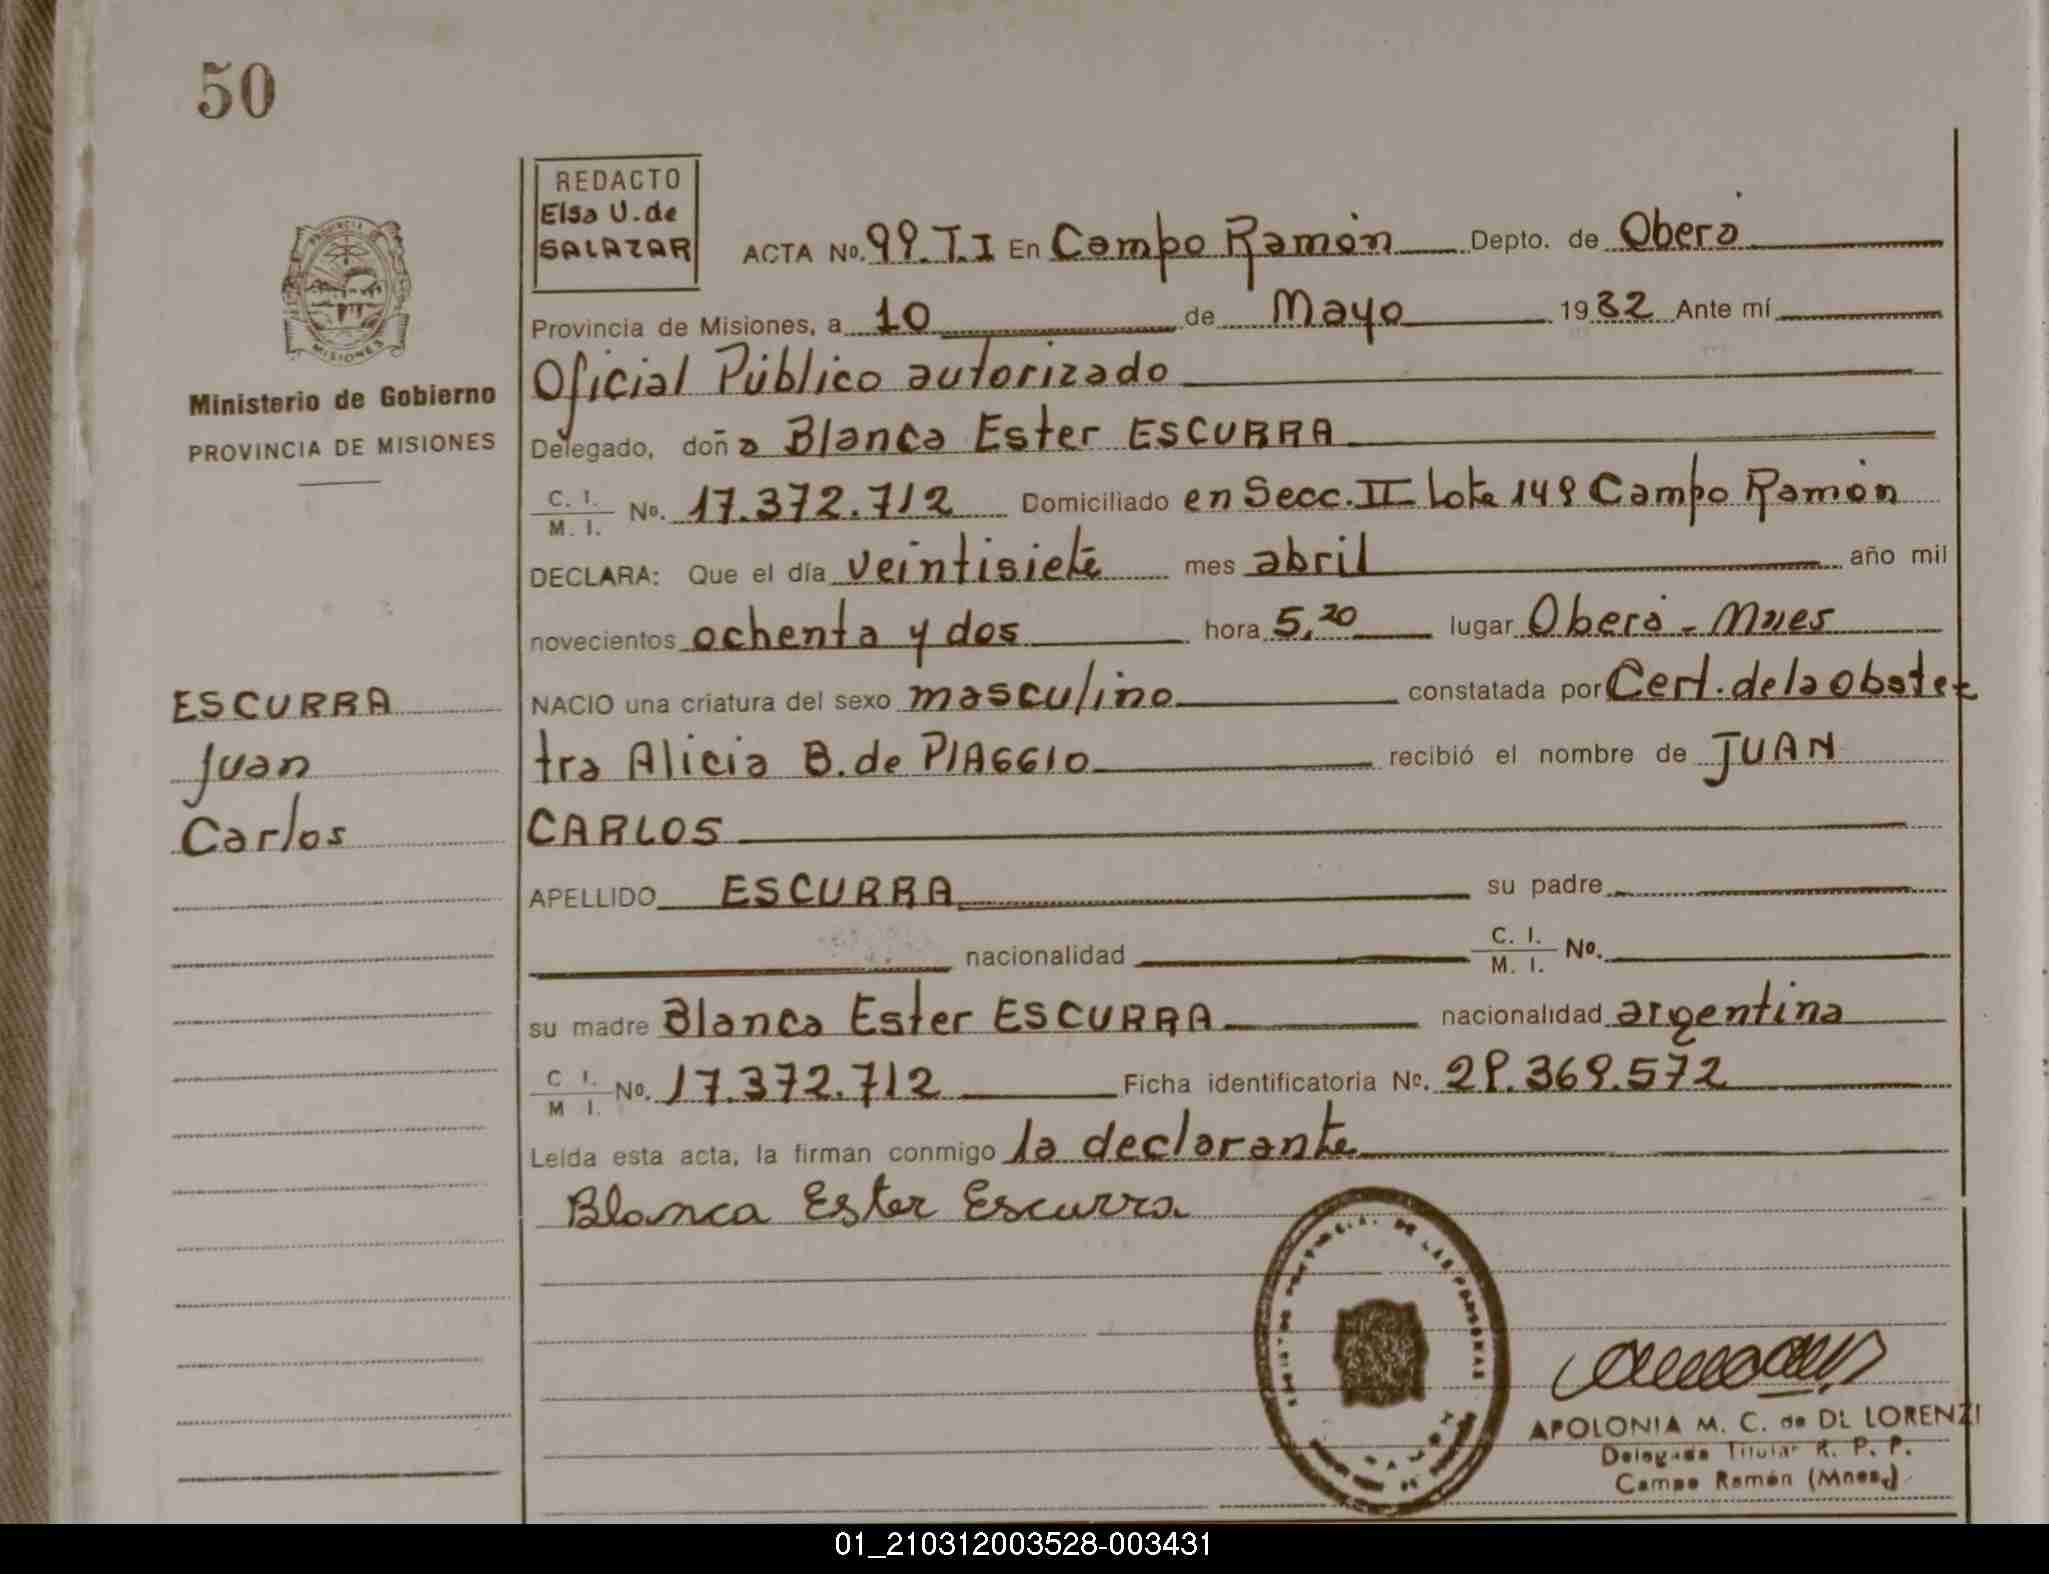 50
REDACTO
Elsa U. de
SALAZAR
ACTA No. 99.T.I En Campo Ramón Depto. de Oberá
Provincia de Misiones, a 10 de Mayo 1982 Ante mí
Oficial Público autorizado
Ministerio de Gobierno
PROVINCIA DE MISIONES
Delegado, doña Blanca Ester ESCURRA
C. I.
M. I. No. 17.372.712 Domiciliado en Secc. II Lote 149 Campo Ramón
DECLARA: Que el día veintisiete mes abril año mil
novecientos ochenta y dos hora 5,20 lugar Oberá - Mnes
ESCURRA
Juan
Carlos
NACIO una criatura del sexo masculino constatada por Cert. de la obste
tra Alicia B. de PIAGGIO recibió el nombre de JUAN
CARLOS
APELLIDO ESCURRA su padre
nacionalidad C. I.
M. I. No.
su madre Blanca Ester ESCURRA nacionalidad argentina
C I.
M I. No. 17.372.712 Ficha identificatoria No. 29.369.572
Leída esta acta, la firman conmigo la declarante
Blanca Ester Escurra
DE LAS PERSONAS
APOLONIA M. C. de DL LORENZI
Delegada Titular R. P. P.
Campo Ramón (Mnes.)
01_210312003528-003431